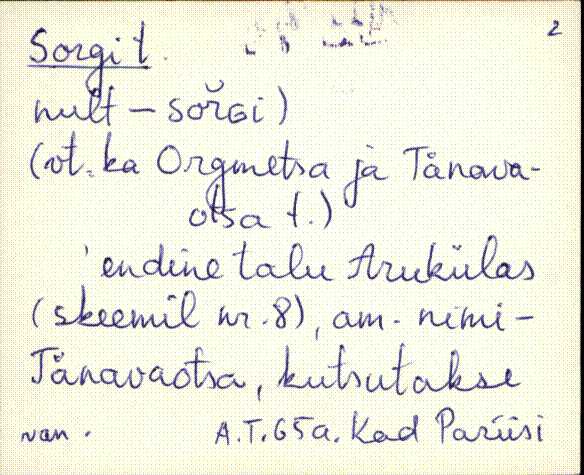 2
Sorgi t.
nult – sořGi)
(vt. ka Orgmetsa ja Tänava-
otsa t.)
'endine talu Arukülas
(skeemil nr. 8), am. nimi –
Tänavaotsa, kutsutakse
van. A.T. 65a. Kad Pariisi